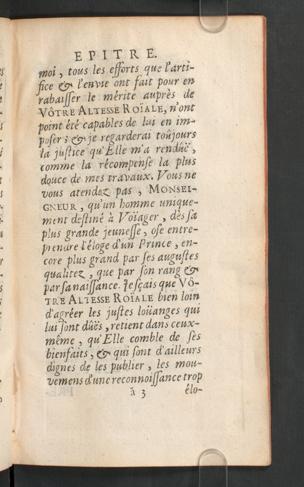 EPITRE.
moi, tous les efforts que l'arti-
fice & l'envie ont fait pour en
rabaisser le mérite auprès de
VÔTRE ALTESSE ROÏALE, n'ont
point été capables de lui en im-
poser; & je regarderai toûjours
la justice qu'Elle m'a renduë,
comme la récompense la plus
douce de mes travaux. Vous ne
vous atendez pas, MONSEI-
GNEUR, qu'un homme unique-
ment destiné à Voïager, dès sa
plus grande jeunesse, ose entre-
prendre l'éloge d'un Prince, en-
core plus grand par ses augustes
qualitez, que par son rang &
par sa naissance. Je sçais que VÔ-
TRE ALTESSE ROÏALE bien loin
d'agréer les justes loüanges qui
lui sont dûës, retient dans ceux-
même, qu'Elle comble de ses
bienfaits, & qui sont d'ailleurs
dignes de les publier, les mou-
vemens d'une reconnoissance trop
à 3
élo-